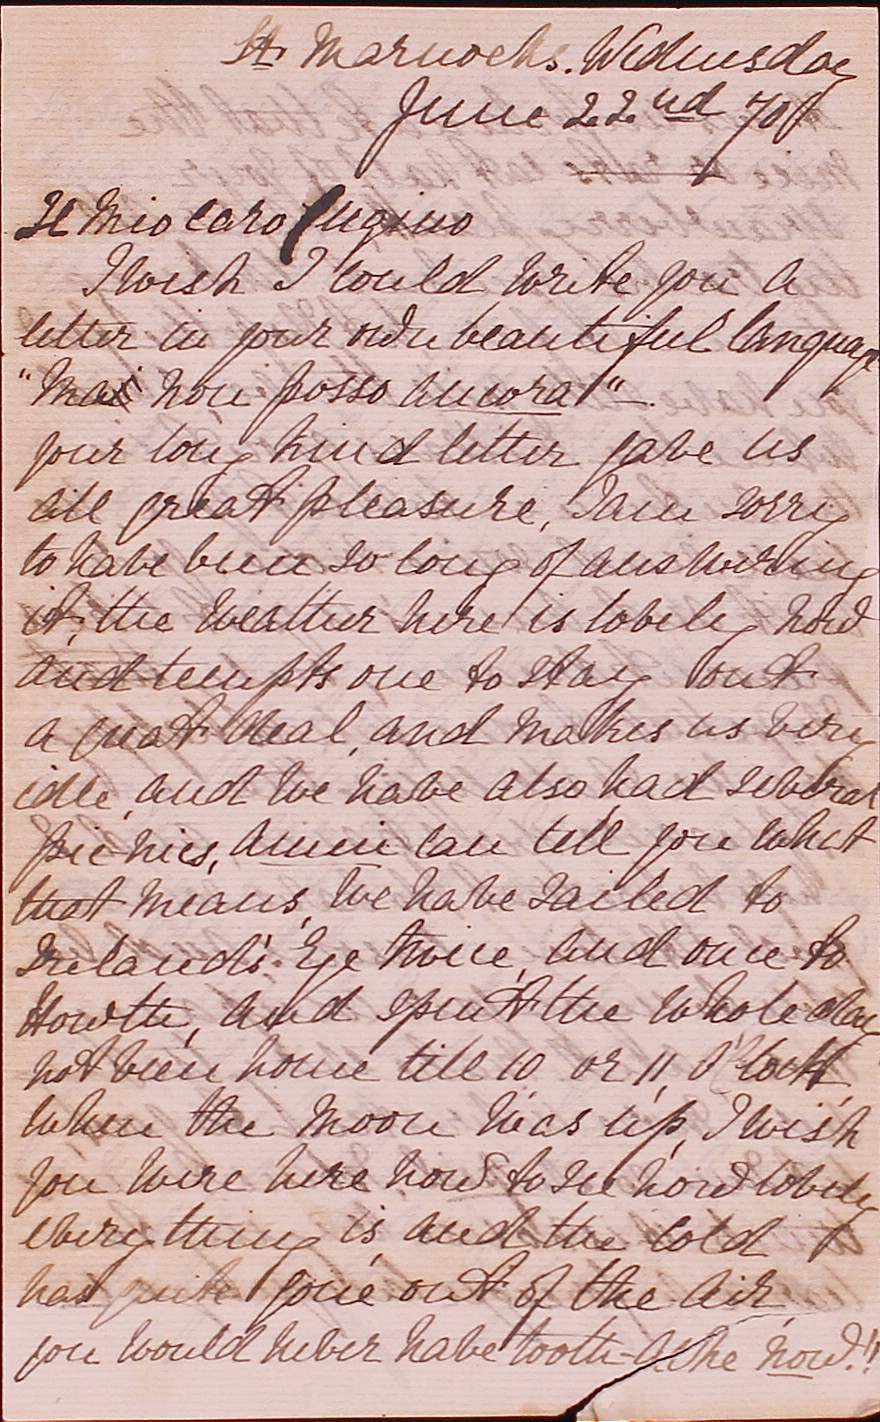 St. Marnocks. Wednesday
June 22nd 70
Il Mio caro Cugino
I wish I could write you a
letter in your own beautiful language
"Ma non posso ancora".
your long kind letter gave us
all great pleasure, I am sorry
to have been so long of answering
it, the weather here is lovely now
and tempts one to stay out
a great deal, and makes us very
idle, and we have also had several
picnics, Annie can tell you what
that means, We have sailed to
Ireland's Eye twice, and once to
Howth, and spent the whole day
not been home till 10 or 11, O'Clock
when the moon was up, I wish
you were here now to see how lovely
everything is, and the cold
has quite gone out of the air
you would never have tooth-ache now!!